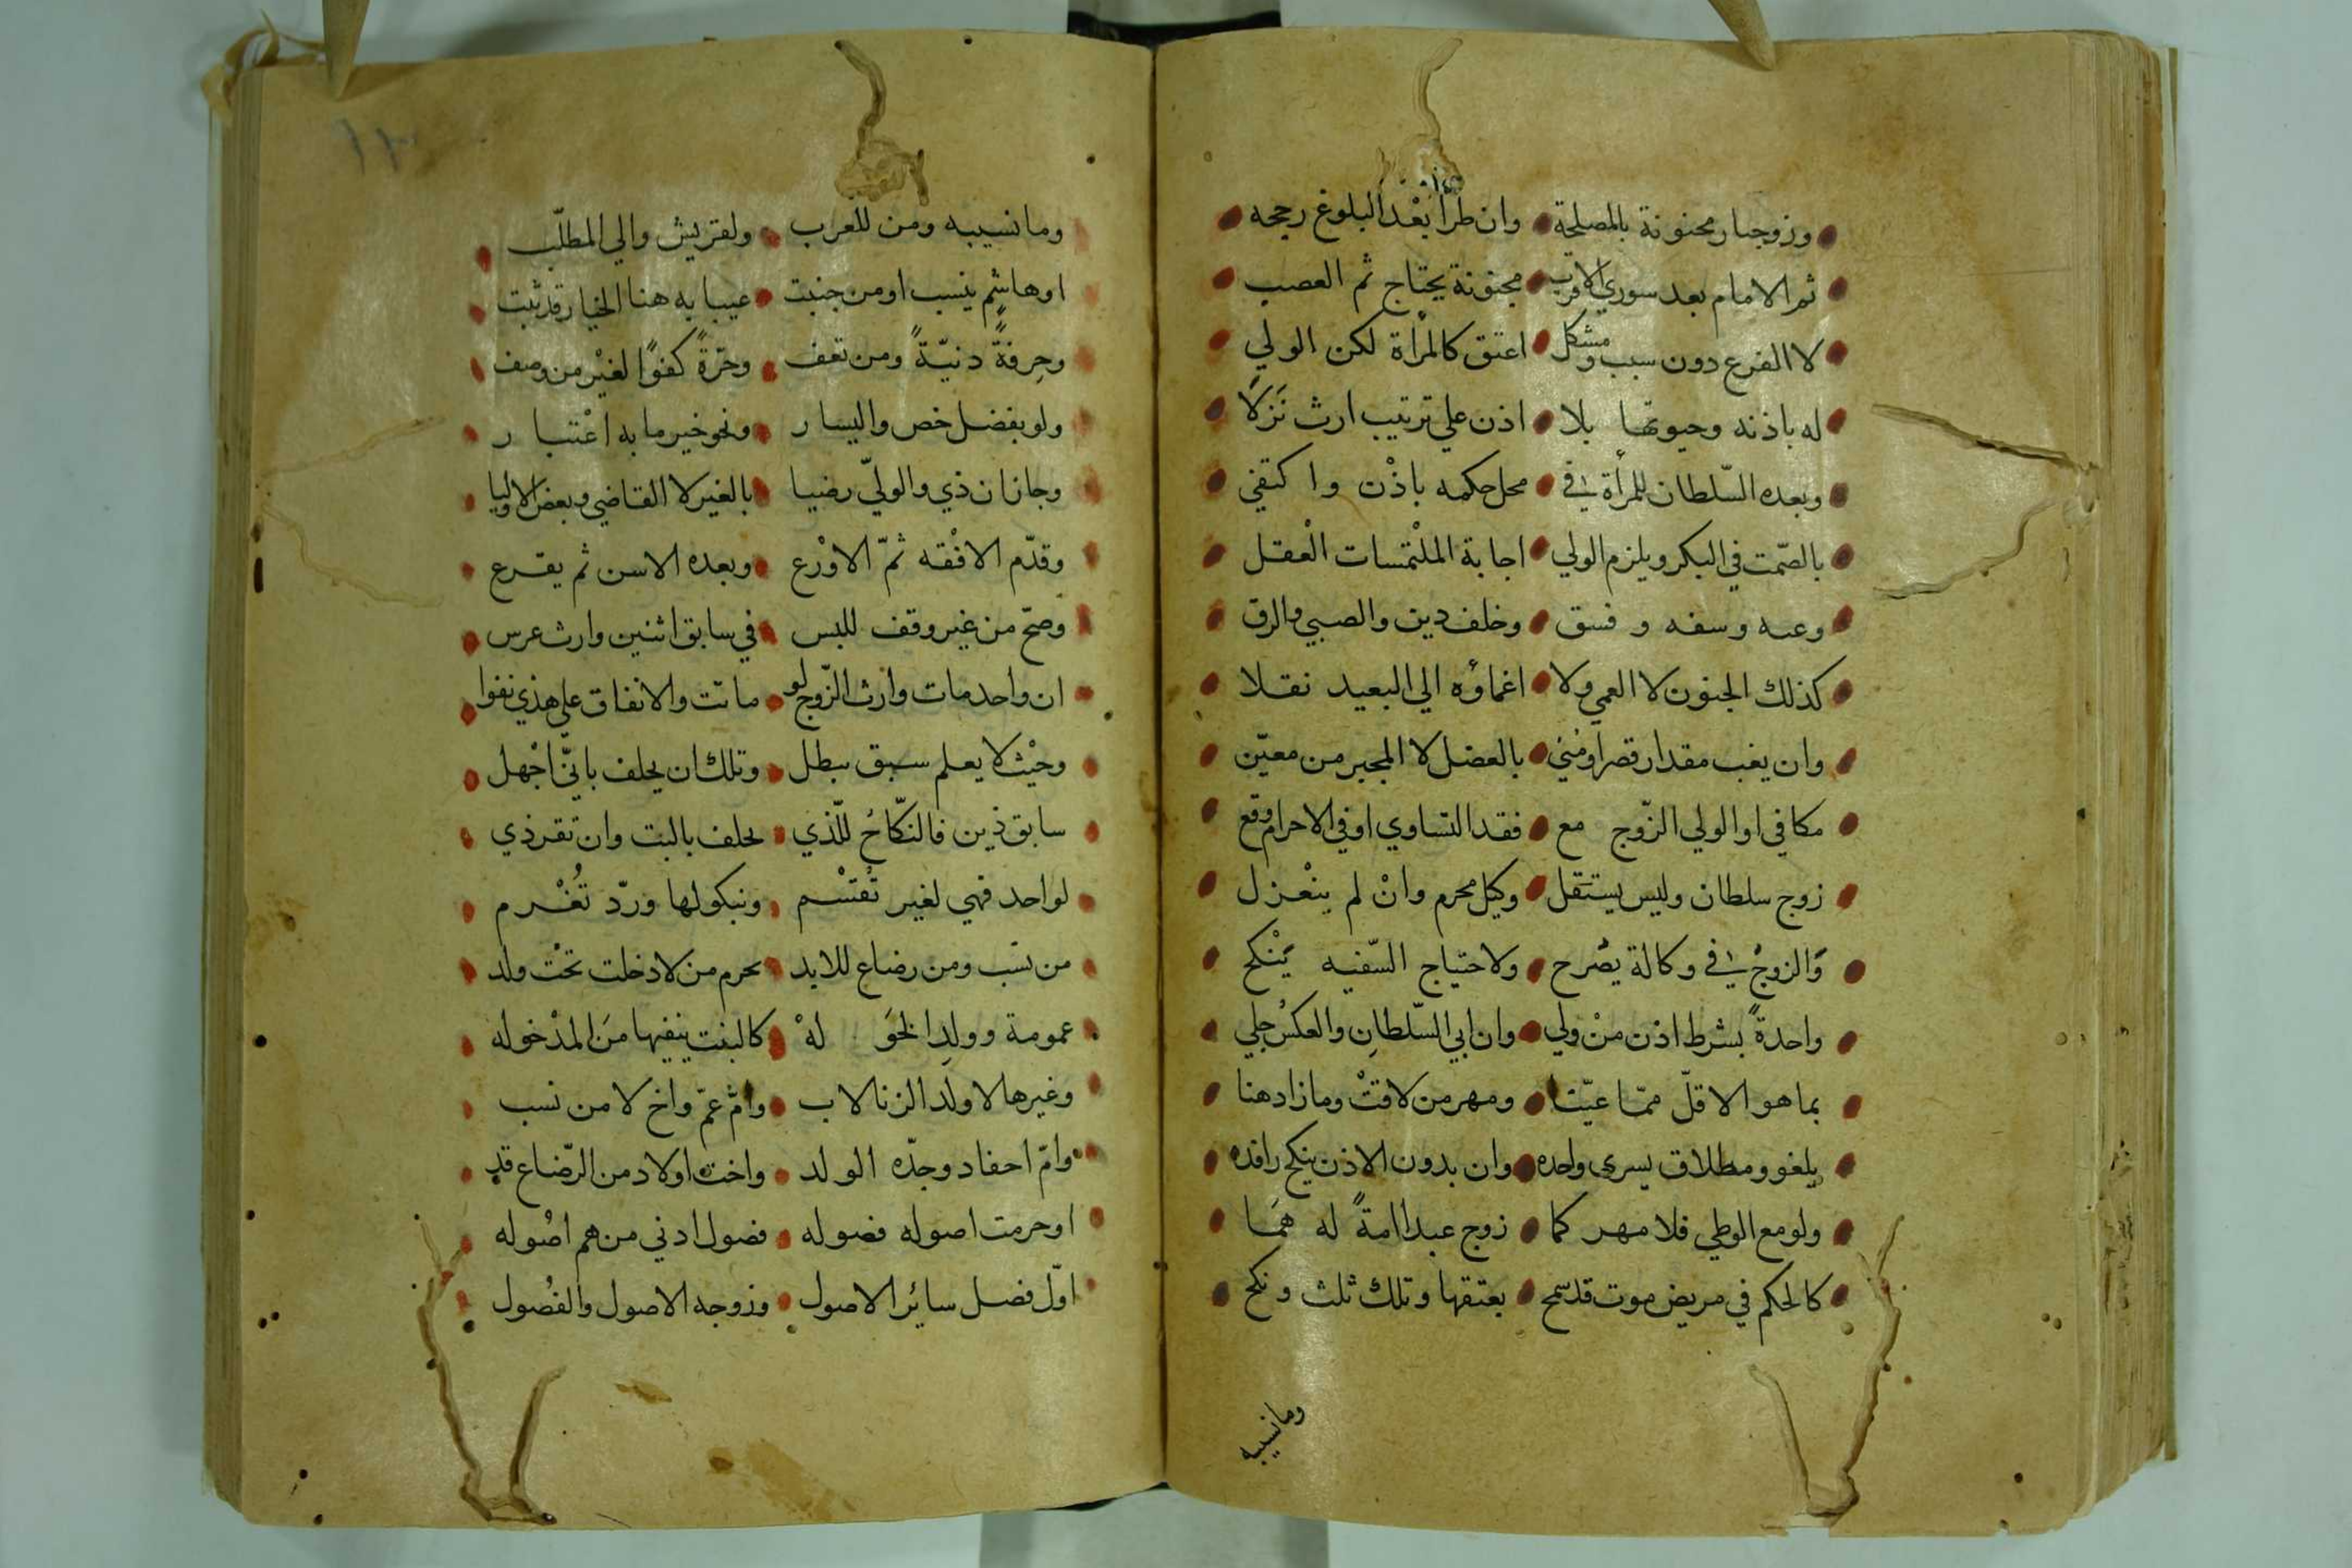 وزوجا رمجنونة بالمصلحة وان طرا بعد البلوغ رججه
ثم الامام بعد سوري الاقرب مجنونة يحتاج ثم العصب
لا الفرع دون سبب ومشكل اعتق كالمرأة لكن الولي
له باذنه وحيوتها بلا اذن علي ترتيب ارث نزلا
وبعده السّلطان للمرأة في محل حكمه باذن واكتفي
بالصّمت في البكر ويلزم الولي اجابة الملتمسات العقل
وعبه وسفه وفسق وخلف دين والصبي والرق
كذلك الجنون لا العمي ولا اغماؤه الي البعيد نقلا
وان يغب مقدار قصر اومني بالعضل لا المجبر من معيّن
مكافي او الولي الزّوج مع فقد التساوي او في الاحرام وقع
زوج سلطان وليس يستقل وكيل محرم وان لم ينعزل
والزوج في وكالة يصرح ولاحتياج السّفيه ينكح
واحدةً بشرط اذن من ولي وان ابي السّلطان والعكس جلي
بما هو الاقلّ ممّا عيّنا ومهر من لاقت وما زاد هنا
يلغو ومطلاق يسري واحده وان بدون الاذن ينكح راقده
ولو مع الوطي فلا مهر كما زوج عبدا امةً له هما
كالحكم في مريض موت قد سمح بعتقها وتلك ثلث ونكح
ومانسيبه
ومانسيبه ومن للعرب ولقريش والي المطلّب
اوهاشم ينسب اومن جنبت عيبا به هنا الخيار قد ثبت
وحرفةً دنيّةً ومن تعف وحرّةً كفوًا لغير من وصف
ولو بفضل خص واليسار ونحو خير ما به اعتبار
وجاز ان ذي والوليّ رضيا بالغير لا القاضي وبعض الاوليا
وقدّم الافقه ثمّ الاورع وبعده الاسن ثم يقرع
وصحّ من غير وقف للبس في سابق اثنين وارث عرس
ان واحد مات وارث الزّوج لو ماتت والانفاق علي هذي نفوا
وحيث لا يعلم سبق يبطل وتلك ان يحلف باني اجهل
سابق ذين فالنكاح للّذي يحلف بالبت وان تقر ذي
لواحد فهي لغير تقتسم ونبكولها وردّ تغرم
من نسب ومن رضاع للابد يحرم من لا دخلت تحت ولد
عمومة وولد الخو له كالبنت ينفيها من المدخوله
وغيرها لا ولد الزنا لاب وامّ عمّ واخ لا من نسب
وامّ احفاد وجدّه الولد واخت اولاد من الرّضاع قد
اوحرمت اصوله فصوله فصول ادني من هم اصوله
اوّل فصل سائر الاصول وزوجه الاصول والفصول